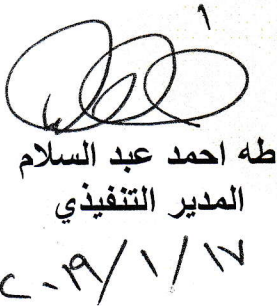 ١
طه احمد عبد السلام
المدير التنفيذي
٢٠١٩/١/١٧